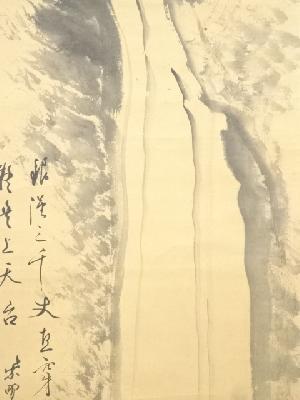 銀漢三千丈直穿
疑是上天台